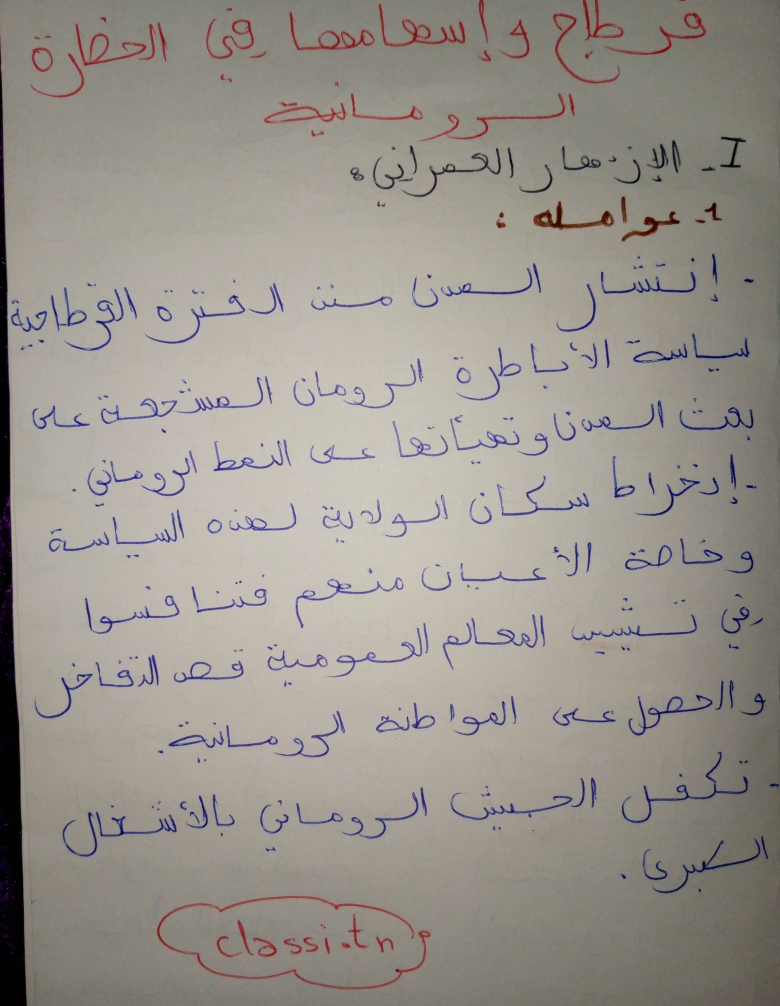 قرطاج وإسهامها في الحظارة
الرومانية
I- الإزدهار العمراني:
1- عوامله :
- إنتشار المدن منذ الفترة القرطاجية
سياسة الأباطرة الرومان المشجعة على
بعث المدن وتهيأتها على النمط الروماني.
- إنخراط سكان الولاية لهذه السياسة
وخاصة الأعيان منهم فتنافسوا
في تشييد المعالم العمومية قصد التفاخر
والحصول على المواطنة الرومانية.
- تكفل الجيش الروماني بالأشغال
الكبرى.
classi.tn